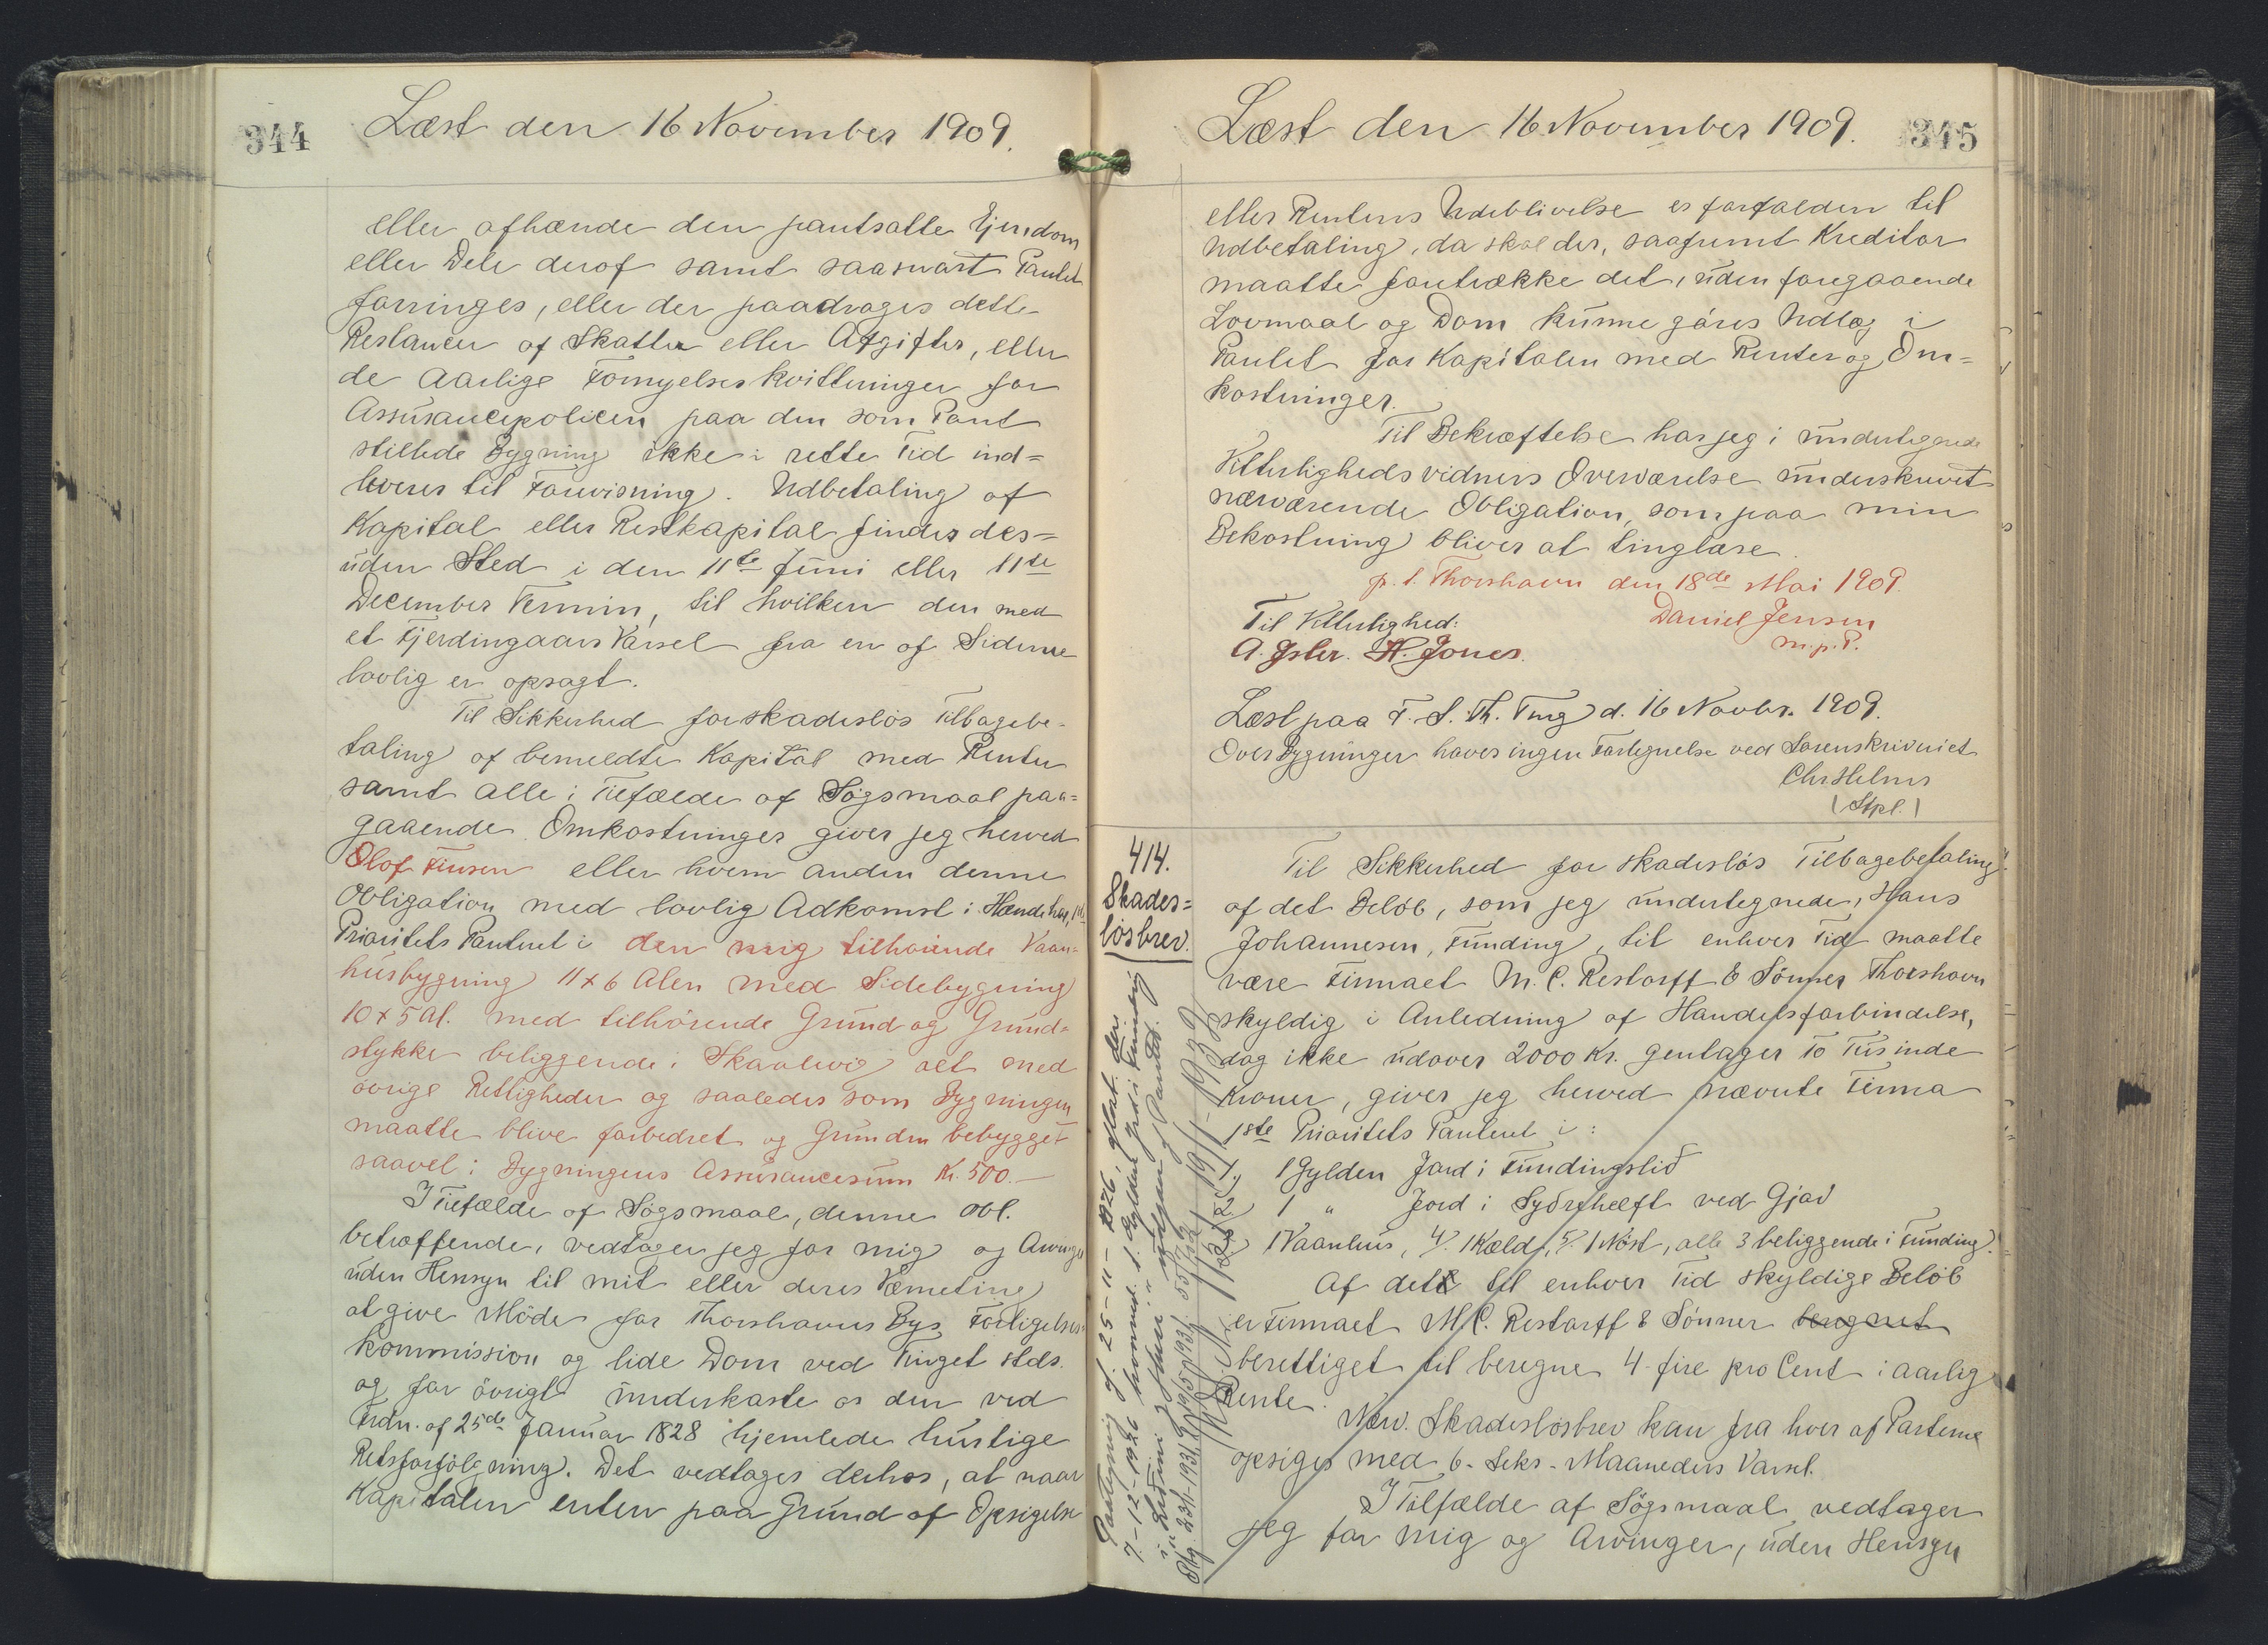 344
Læst den 16 November 1909.
eller afhænde den pantsatte Ejendom
eller Dele deraf samt saasnart Pantet
forringes, eller der paadrages dette
Restancer af Skatter eller Afgifter, eller
de aarlige Fornyelseskvitteringer for
Assurancepolicen paa den som Pant
stillede Bygning ikke i rette Tid ind=
leveres til Forevisning. Udbetaling af
Kapital eller Restkapital finder des=
uden Sted i den 11te Juni eller 11te
December Termin, til hvilken den med
et Fjerdingaars Varsel fra en af Siderne
lovlig er opsagt.
Til Sikkerhed for skadeslös Tilbagebe-
taling af bemeldte Kapital med Renter
samt alle i Tilfælde af Sögsmaal paa=
gaaende Omkostninger giver jeg herved
Olof Finsen eller hvem anden denne
Obligation med lovlig Adkomst i Hænde har, 1ste
Prioritets Panteret i den mig tilhörende Vaan=
husbygning 11 x 6 Alen med Sidebygning
10 x 5 Al. med tilhörende Grund og Grund=
stykke beliggende i Skaalevig alt med
övrige Rettigheder og saaledes som Bygningen
maatte blive forbedret og Grunden bebygget
saavel i Bygningens Assurancesum Kr. 500.—
I Tilfælde af Sögsmaal, denne Obl.
betræffende, vedtager jeg for mig og Arvinger
uden Hensyn til mit eller deres Værneting
at give Möde for Thorshavns Bys Forligelses=
kommission og lide Dom ved Tinget stds.
og for övrigt underkaste os den ved
Frdn. af 25de Januar 1828 hjemlede hurtige
Retsforfölgning. Det vedtages derhos, at naar
Kapitalen enten paa Grund af Opsigelse
Læst den 16 November 1909.
345
eller Rentens Udeblivelse er forfalden til
Udbetaling, da skal der, saafremt Kreditor
maatte foretrække det, uden foregaaende
Lovmaal og Dom kunne göres Udlæg i
Pantet for Kapitalen med Renter og Om=
kostninger.
Til Bekræftelse har jeg i undertegnede
Vitterlighedsvidners Overværelse underskrevet
nærværende Obligation, som paa min
Bekostning bliver at tinglæse.
p. t. Thorshavn den 18de Mai 1909.
Daniel Jensen
m. p. P.
Til Vitterlighed:
A. Isler. H. Jones.
Læst paa F. S. Th. Ting d. 16 Novbr. 1909.
Over Bygninger haves ingen Fortegnelse ved Sorenskriveriet
Chr Helms
(Stpl.)
414.
Skades=
lösbrev.
Til Sikkerhed for skadeslös Tilbagebetaling
af det Belöb, som jeg undertegnede, Hans
Johannesen, Funding, til enhver Tid maatte
være Firmaet M. C. Restorff & Sönner Thorshavn
skyldig i Anledning af Handelsforbindelse,
dog ikke udover 2000 Kr. gentager To Tusinde
Kroner, giver jeg herved nævnte Firma
1ste Prioritets Panteret i:
1, 1 Gylden Jord i Fundingslid
2, 1 " Jord i Syðrahelft ved Gjad
3, 1 Vaanhus, 4). 1 Kæld, 5). 1 Nöst, alle 3 beliggende i Funding.
Af det til enhver Tid skyldige Belöb
er Firmaet M. C. Restorff & Sönner beregnet
berettiget til beregne 4 - fire pro Cent i aarlig
Rente.
Nærv. Skadeslösbrev kan fra hver af Parterne
opsiges med 6 - Seks - Maaneders Varsel.
I Tilfælde af Sögsmaal vedtager
jeg for mig og Arvinger, uden Hensyn
Paategning af 25-11-1926, aflæst den
7-12-1926 hvorved 1. Gylden Jord i Funding
udgaar af Pantet.